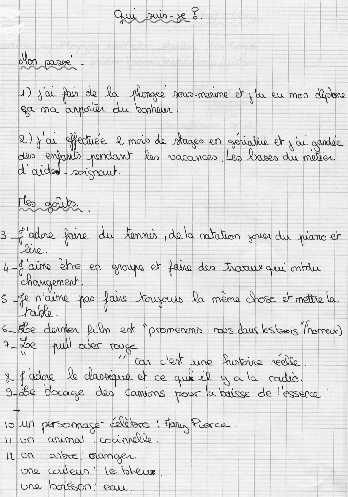 Qui suis-je ?
Mon passé.
1) j'ai fais de la plongée sous-marine et j'ai eu mon diplome
ça ma apporter du bonheur.
2) j'ai effectuée 2 mois de stages en gériatrie et j'ai gardée
des enfants pendant les vacances. Les bases du métier
d'aide-soignant.
Mes goûts.
3_ J'adore faire du tennis, de la natation jouer du piano et
lire.
4_ J'aime être en groupe et faire des travaux qui
changement.
5_ Je n'aime pas faire toujours la même chose et mettre la
table.
6_ Le dernier film est "promenons nous dans les bois" (horreur)
7_ Le pull over rouge
" " car c'est une histoire réelle.
8_ J'adore le classique et ce qu'il y a la radio.
9_ Le blocage des camions pour la baisse de l'essence
10_ un personnage célèbre : Mary Pierce
11_ un animal coccinelle.
12_ un arbre oranger
une couleur : le bleu
une boisson : eau